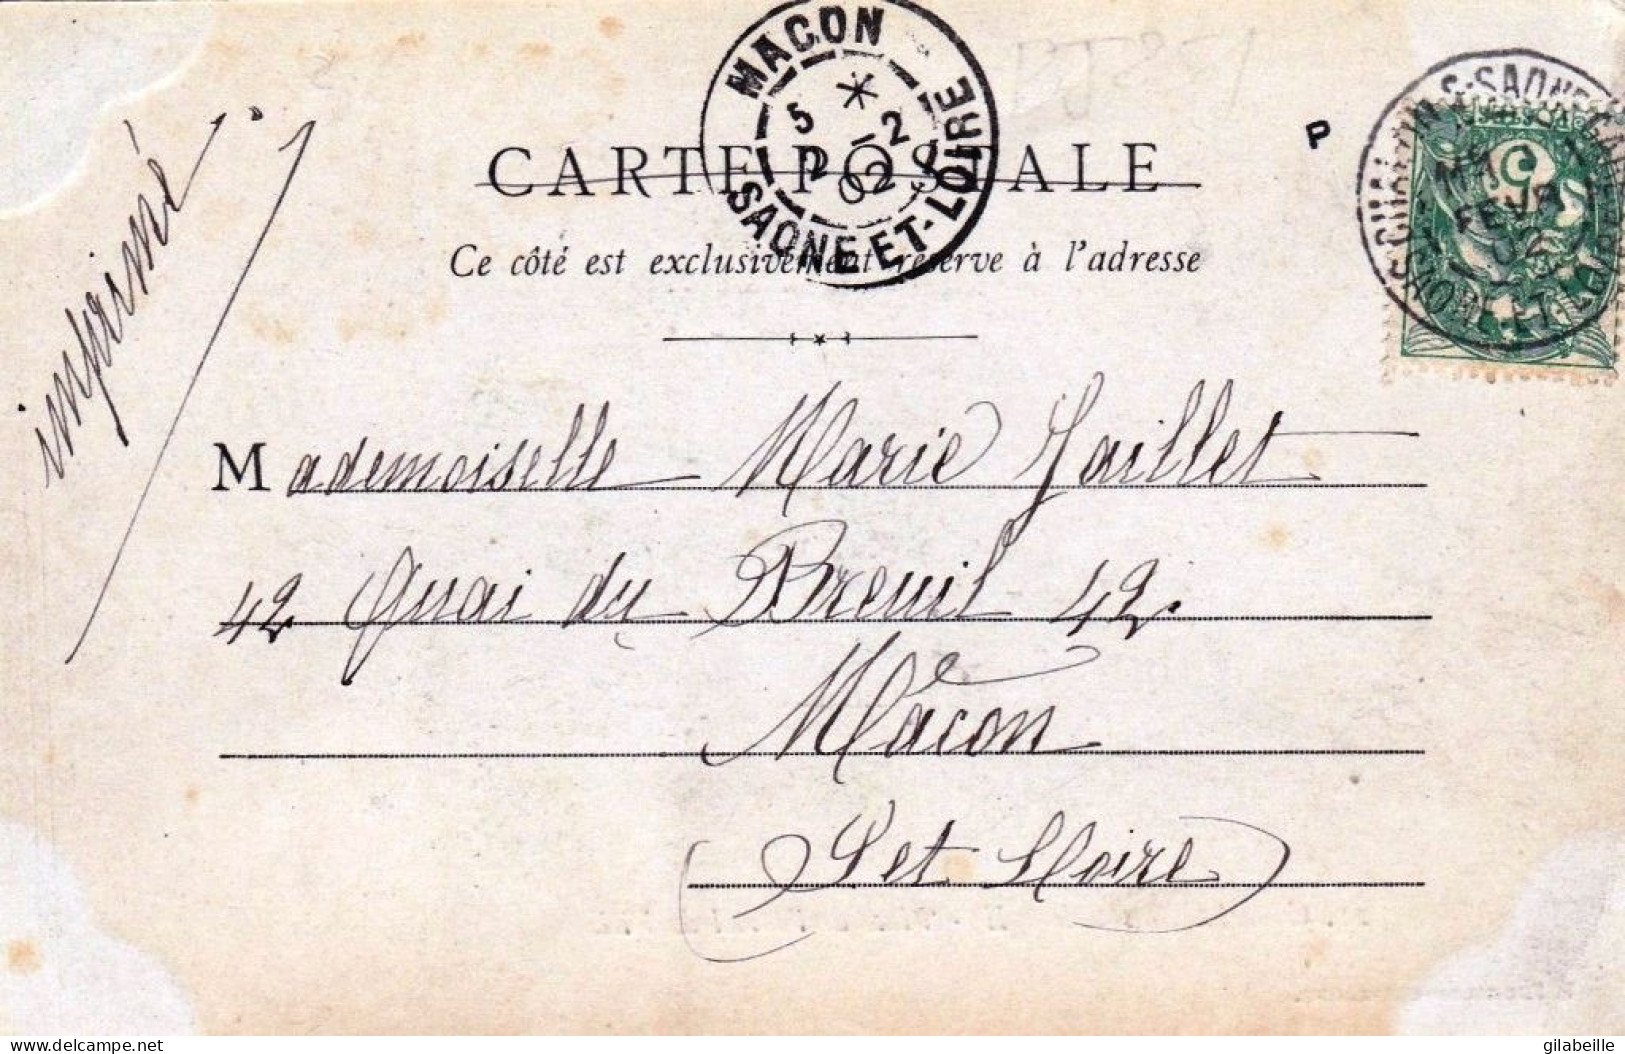 MACON
5 * 2
2 - 02
SAONE-ET-LOIRE
P
CHALON S-SAONE GARE
SAONE-ET-LOIRE
FEVR
02
5
imprimé
CARTE POSTALE
Ce côté est exclusivement réservé à l'adresse
Mademoiselle Marie Jaillet
42 Quai du Breuil 42.
Mâcon
(S et Loire)
delcampe.net
gilabeille